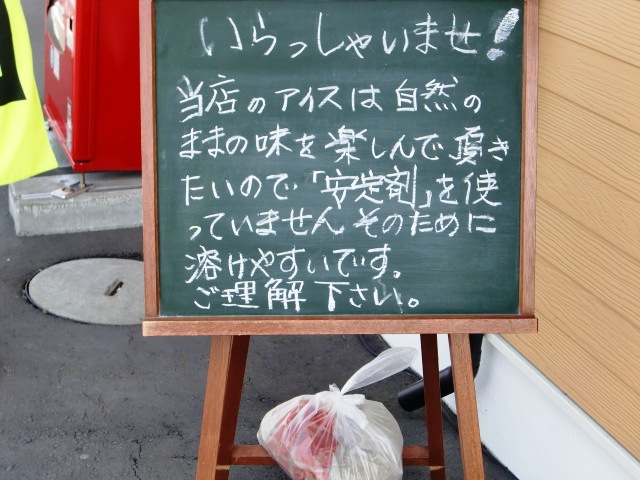 いらっしゃいませ!
当店のアイスは自然の
ままの味を楽しんで頂き
たいので「安定剤」を使
っていません そのために
溶けやすいです。
ご理解下さい。